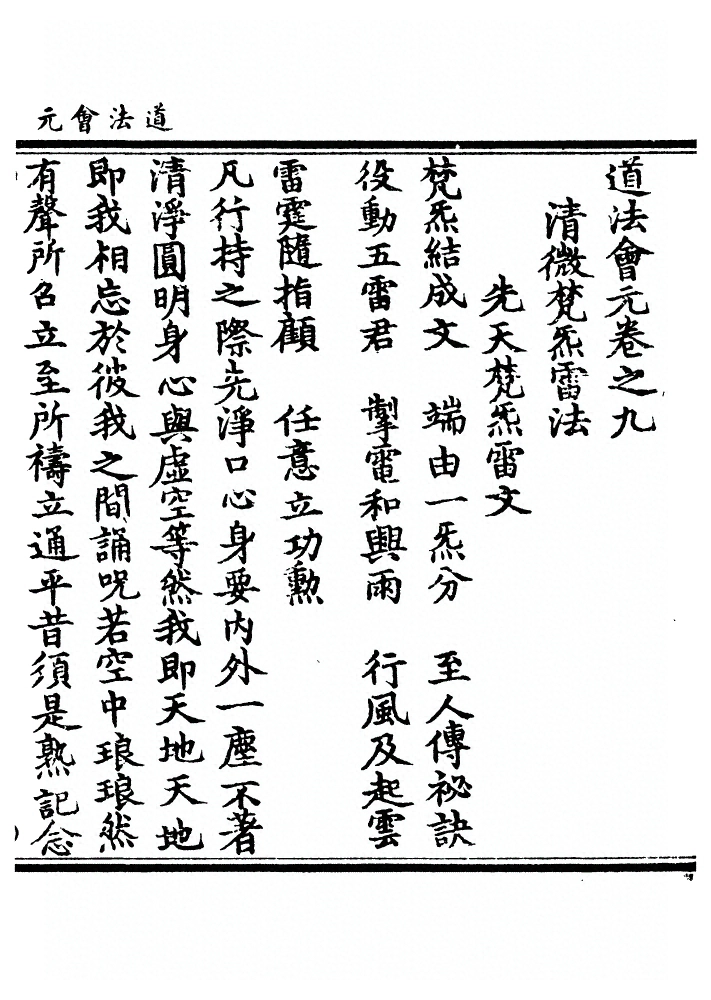 道法會元
道法會元卷之九
清微梵炁雷法
先天梵炁雷文
梵炁結成文　端由一炁分　至人傳祕訣
役動五雷君　掣電和興雨　行風及起雲
雷霆隨指顧　任意立功勲
凡行持之際先淨口心身要内外一塵不著
清淨圓明身心與虛空等然我即天地天地
即我相忘於彼我之間誦呪若空中琅琅然
有聲所召立至所禱立通平昔須是熟記念